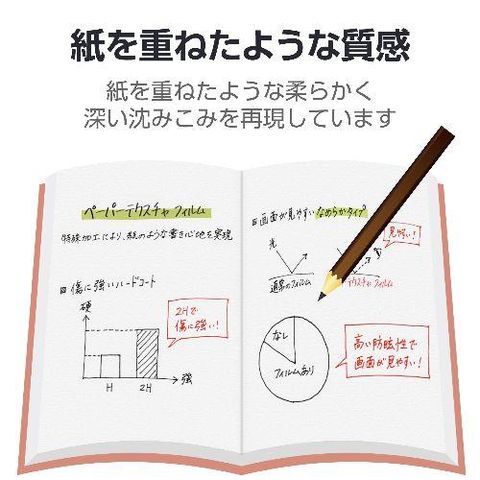 紙を重ねたような質感
紙を重ねたような柔らかく
深い沈みこみを再現しています
ペーパーテクスチャフィルム
特殊加工により、紙のような書き心地を実現
傷に強いハードコート
硬
2Hで
傷に強い!
H
2H
強
画面が見やすいなめらかタイプ
光
見やすい!
通常のフィルム
テクスチャフィルム
なし
フィルムあり
高い防眩性で
画面が見やすい!